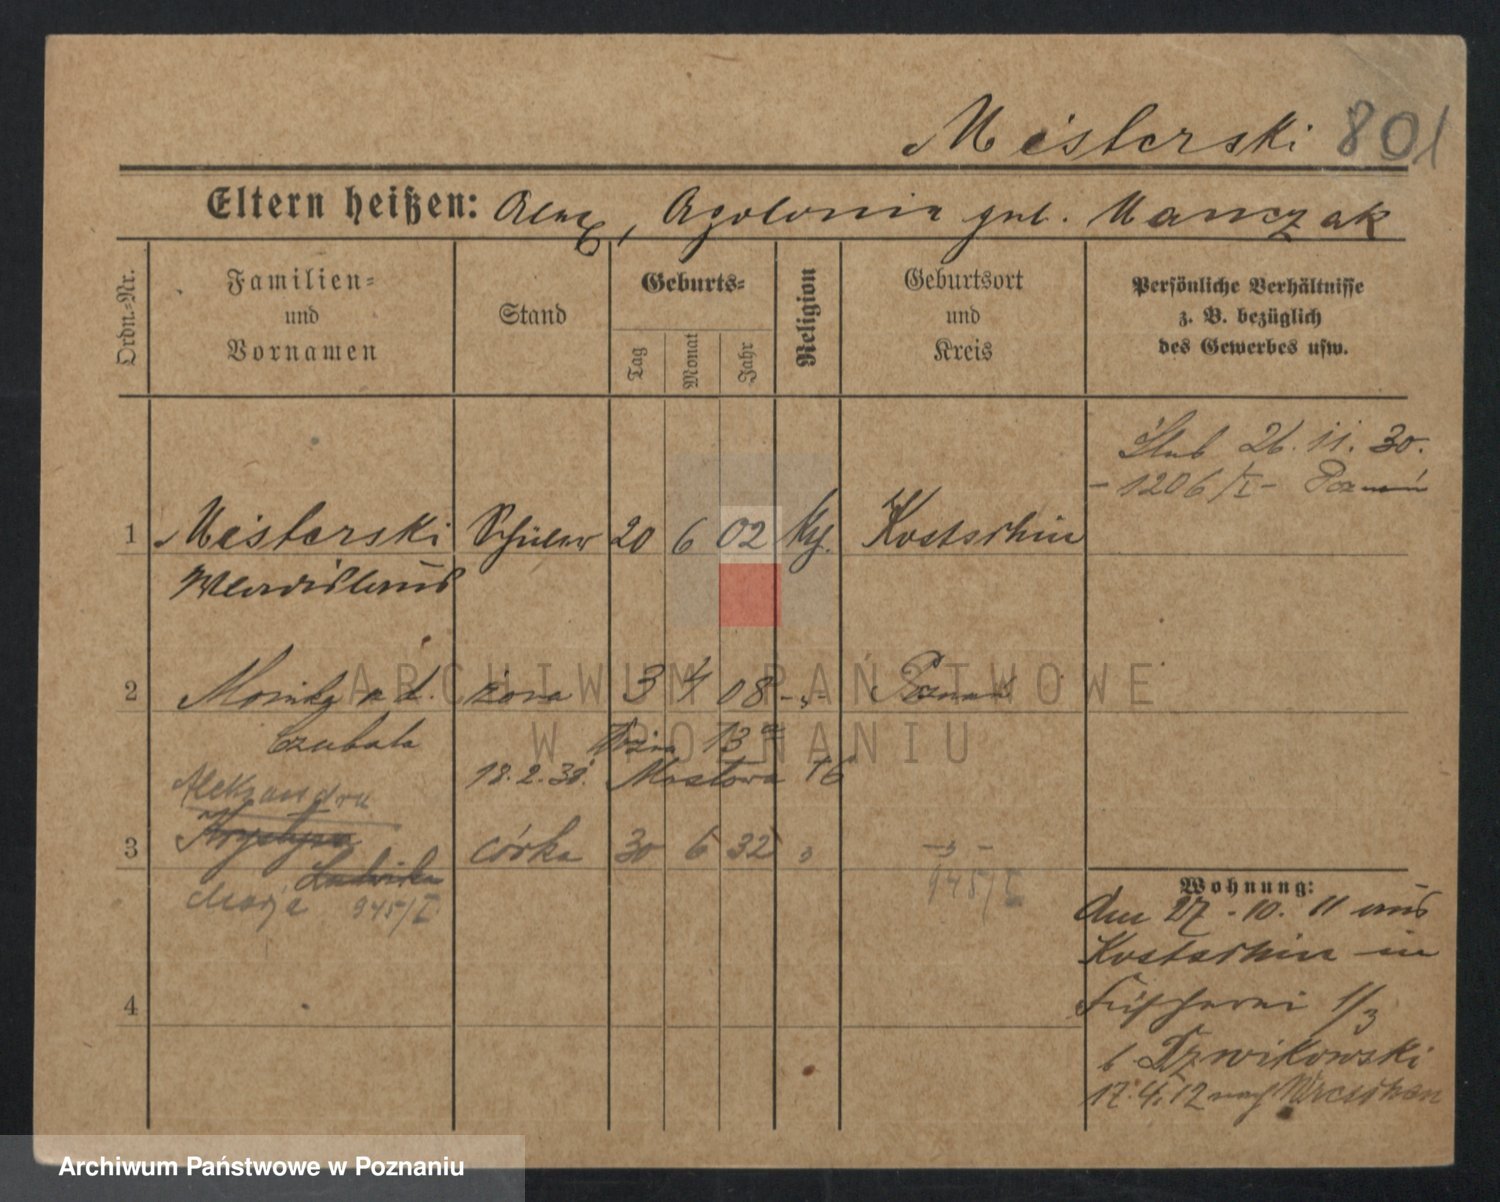 Misterski 801
Eltern heißen: Alex, Apolonia geb. Manczak
Ordn.-Nr.
Familien- und Vornamen
Stand
Geburts-
Tag
Monat
Jahr
Religion
Geburtsort und Kreis
Persönliche Verhältnisse z. B. bezüglich des Gewerbes usw.
Ślub 26.11.30.
- 1206/I - Poznań
1 Misterski Schüler 20 6 02 Kostschin
Wladislaus
2 żona 3 4 08 -"- Poznań
Czubala 13
18.2.38. Mostowa 16
Aleksandra
3 Krystyna córka 30 6 32 " -"-
Ludwika
Marja 945/I 945/I
Wohnung:
den 27.10.11 aus
Kostschin in
Fischerei 1/3
b
17.4.12 nach Wreschen
4
ARCHIWUM PAŃSTWOWE
W POZNANIU
Archiwum Państwowe w Poznaniu